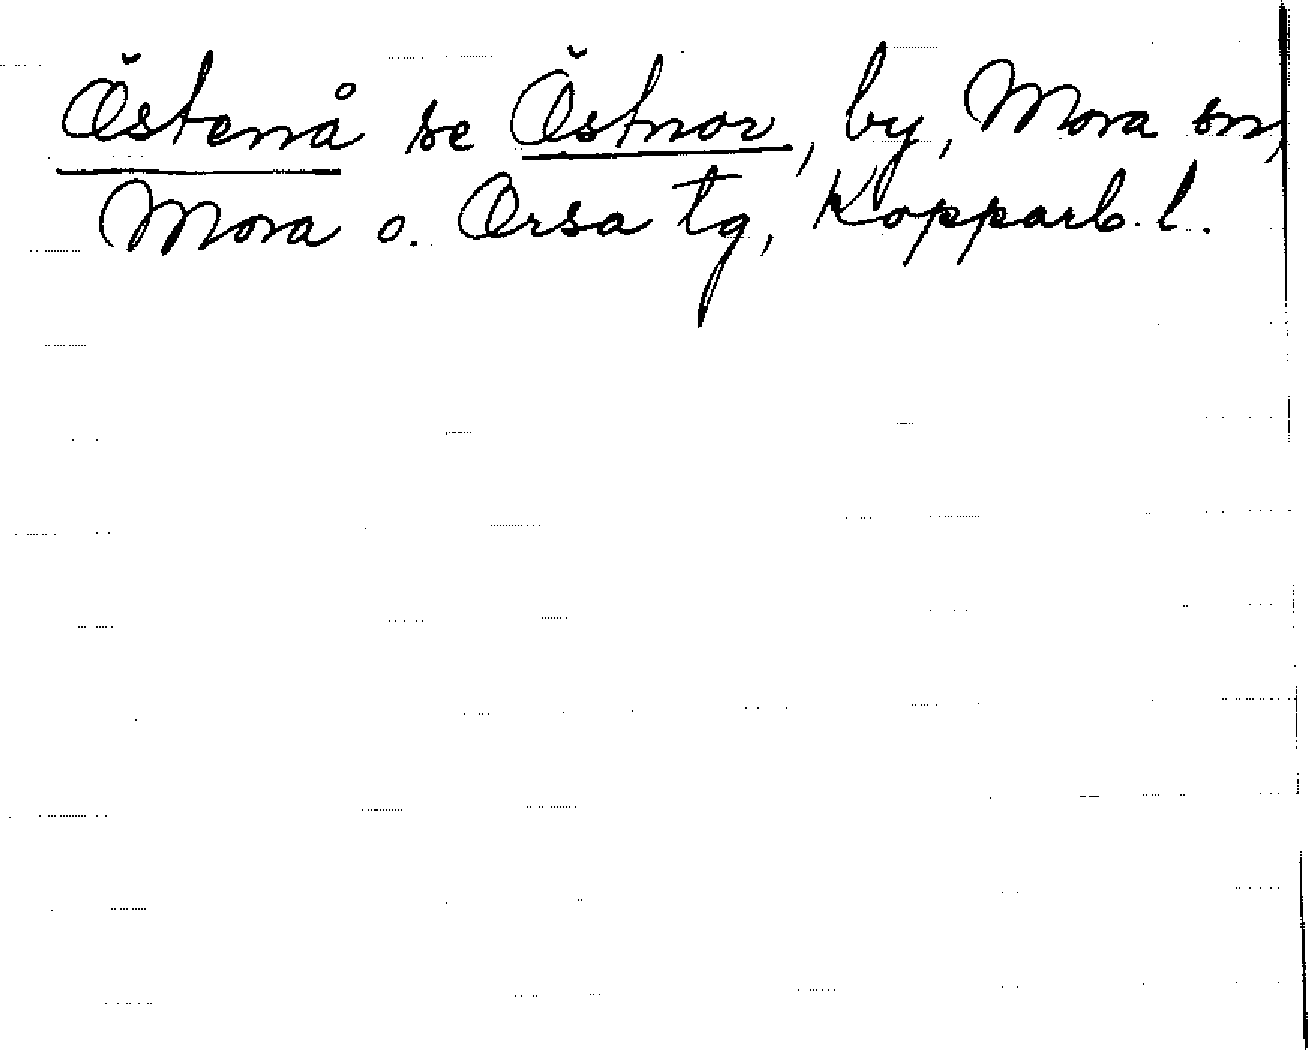 Östernå se Östnor, by, Mora sn,
Mora o. Orsa tg, Kopparb. l.